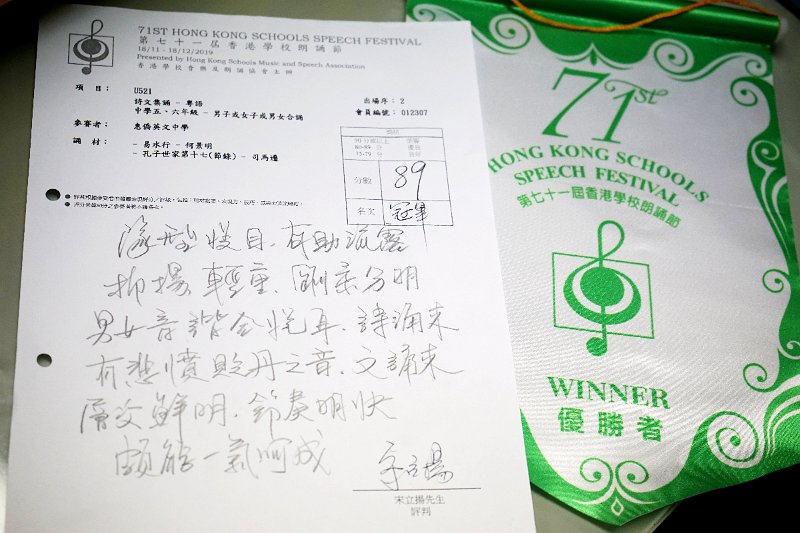 71ST HONG KONG SCHOOLS SPEECH FESTIVAL
第七十一屆香港學校朗誦節
18/11 - 18/12/2019
Presented by Hong Kong Schools Music and Speech Association
香港學校音樂及朗誦協會主辦
項目： U521
詩文集誦 - 粵語
中學五、六年級 - 男子或女子或男女合誦
出場序：2
會員編號：012307
參賽者： 惠僑英文中學
誦材： - 易水行 - 柯景明
- 孔子世家第十七(節錄) - 司馬遷
獎狀
90 分或以上 榮譽
80-89 分 優良
75-79 分 良好
分數 89
名次 冠軍
隊型悅目．有助流露
抑揚輕重．剛柔分明
男女音諧合悅耳．詩誦來
有悲憤之音．文誦來
層次鮮明．節奏明快
頗能一氣呵成
宋立揚
宋立揚先生
評判
71st
HONG KONG SCHOOLS
SPEECH FESTIVAL
第七十一屆香港學校朗誦節
WINNER
優勝者